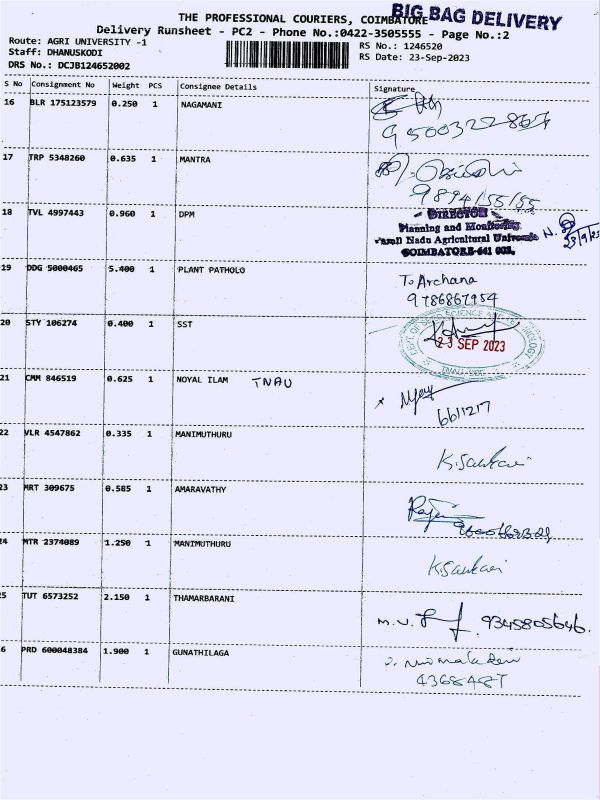 BIG BAG DELIVERY
THE PROFESSIONAL COURIERS, COIMBATORE
Delivery Runsheet - PC2 - Phone No.:0422-3505555 - Page No.:2
Route: AGRI UNIVERSITY -1
Staff: DHANUSKODI
DRS No.: DCJB124652002
RS No.: 1246520
RS Date: 23-Sep-2023
S No Consignment No Weight PCS Consignee Details Signature
16 BLR 175123579 0.250 1 NAGAMANI
17 TRP 5348260 0.635 1 MANTRA
9894155155
18 TVL 4997443 0.960 1 DPM
DIRECTOR
Planning and Monitoring
Tamil Nadu Agricultural University
COIMBATORE-641 003.
N.
23/9/23
19 DDG 5000465 5.400 1 PLANT PATHOLO
To Archana
9786867954
20 STY 106274 0.400 1 SST
DEPT. OF SEED SCIENCE AND TECHNOLOGY
23 SEP 2023
TNAU, CBE
21 CMM 846519 0.625 1 NOYAL ILAM TNAU
6611217
22 VLR 4547862 0.335 1 MANIMUTHURU
K.Sankari
23 MRT 309675 0.585 1 AMARAVATHY
24 MTR 2374089 1.250 1 MANIMUTHURU
K.Sankari
25 TUT 6573252 2.150 1 THAMARBARANI
M.V. 9345805646.
6 PRD 600048384 1.900 1 GUNATHILAGA
4368487